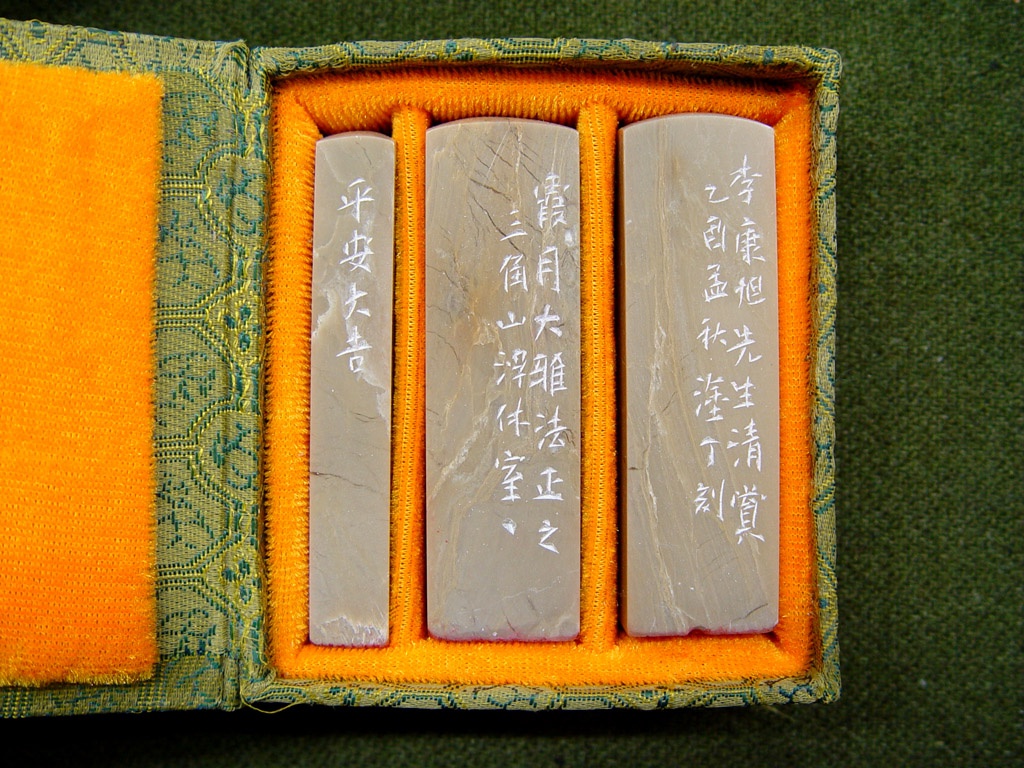 李康旭先生清賞
乙酉孟秋塗丁刻
霞月大雅法正之
三角山浮休室、
平安大吉